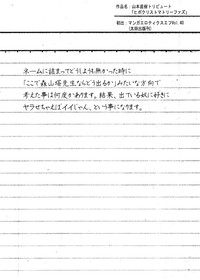 作品名：山本直樹トリビュート
「ヒポクリストマトリーファズ」
初出：マンガエロティクスエフVol. 40
(太田出版刊)
ネームに詰まってどうしようも無かった時に
「ここで森山塔先生ならどう出るか」みたいな方向で
考えた事は何度かあります。結果、出ている奴に好きに
ヤラせちゃえばイイじゃん、という事になります。